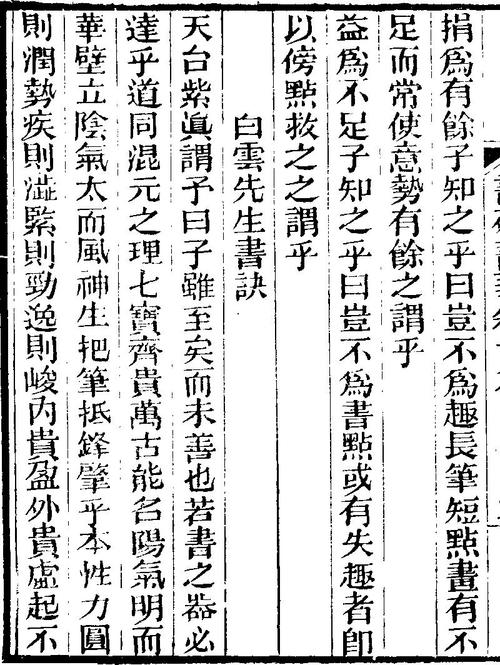 損爲有餘子知之乎曰豈不爲趣長筆短點畫有不
足而常使意勢有餘之謂乎
益爲不足子知之乎曰豈不爲書點或有失趣者卽
以傍點救之之謂乎
白雲先生書訣
天台紫眞謂予曰子雖至矣而未善也若書之器必
達乎道同混元之理七寶齊貴萬古能名陽氣明而
華壁立陰氣太而風神生把筆抵鋒肇乎本性力圓
則潤勢疾則澁緊則勁逸則峻內貴盈外貴虛起不